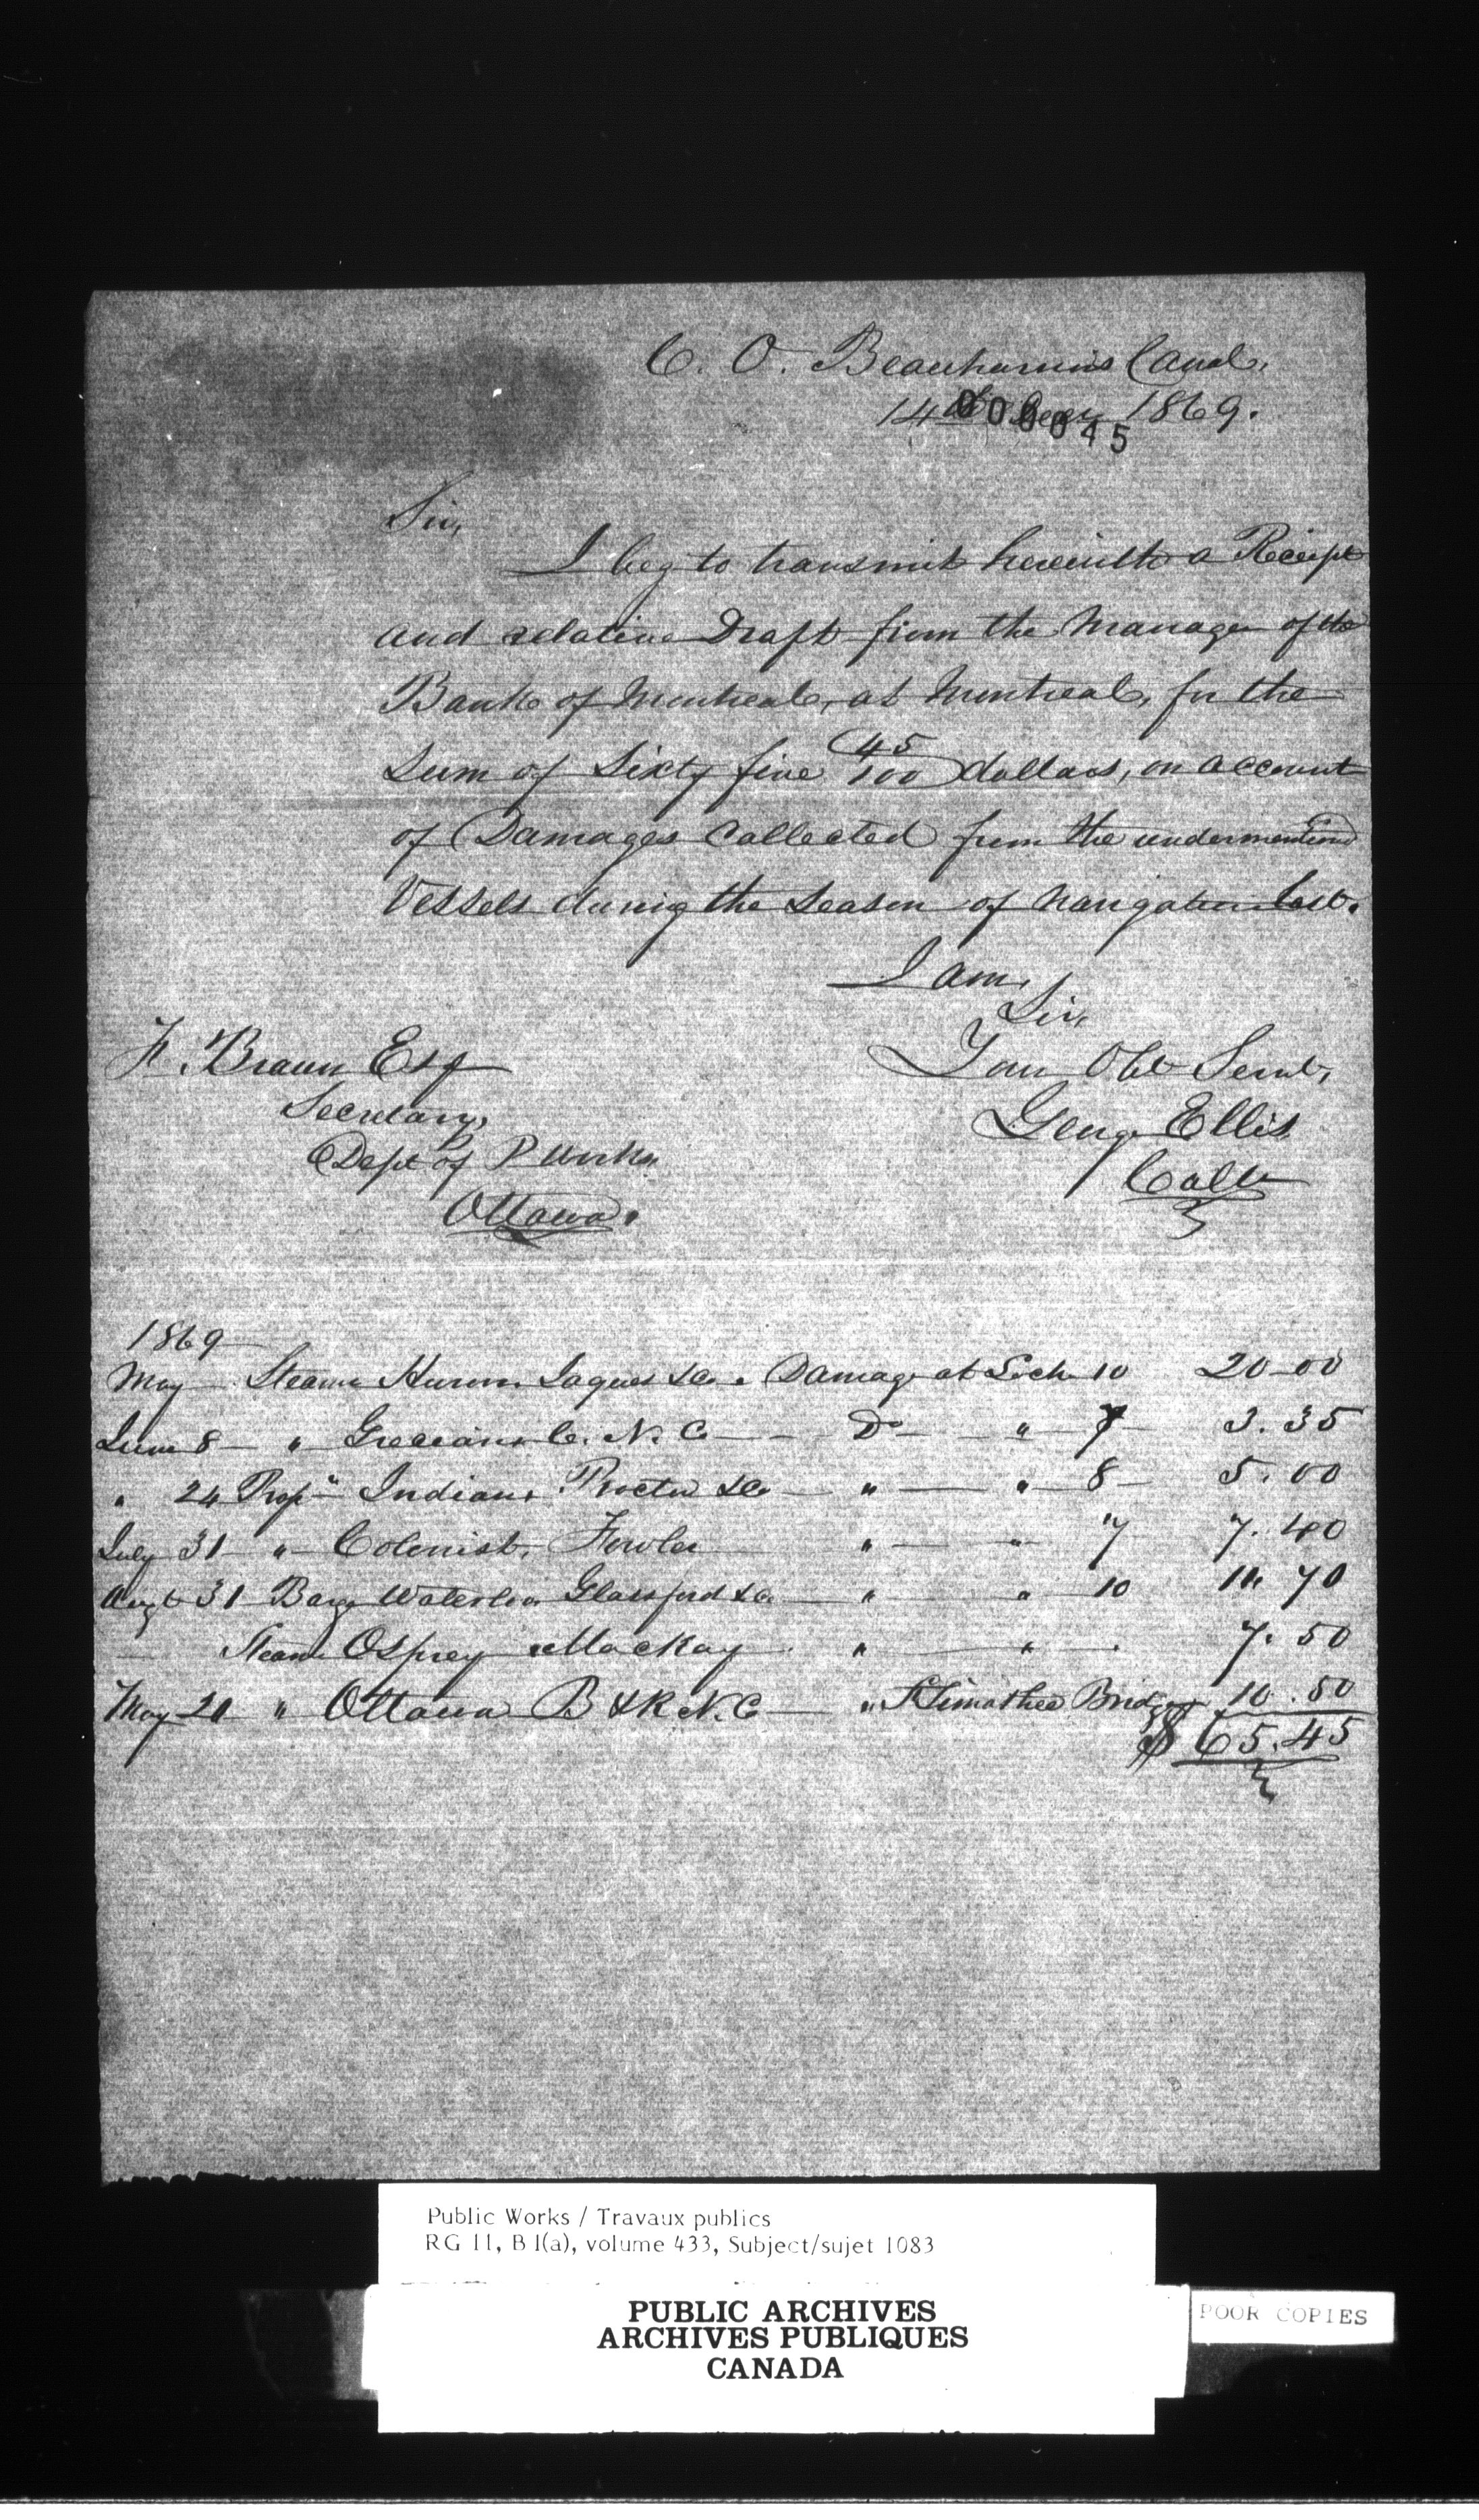 C. O. Beauharnois Canal,
14th Decr 1869.
000045
Sir,
I beg to transmit herewith a Receipt
and relative Draft from the Manager of the
Bank of Montreal, at Montreal, for the
Sum of Sixty five 45/100 dollars, on account
of Damages Collected from the undermentiond
Vessels during the Season of Navigation last.
I am,
Sir,
Your Obt Servt,
George Ellis
Collr
F. Braun Esq
Secretary,
Dept of P Works,
Ottawa.
1869
May Steamr Huron Jaques &Co. Damage at Lock 10 20-00
June 8 " Grecian C. N. Co Do " 7 3.35
" 24 Propr Indian Proctor &Co " " 8 5.00
July 31 " Colonist, Fowler " " 7 7.40
Augt 31 Barge Waterloo Glassford &Co " " 10 11.70
Steamr Osprey McKay " " 7.50
May 20 " Ottawa B & R. N. Co " St Timothee Bridge 10.50
$ 65.45
Public Works / Travaux publics
RG 11, B 1(a), volume 433, Subject/sujet 1083
PUBLIC ARCHIVES
ARCHIVES PUBLIQUES
CANADA
POOR COPIES